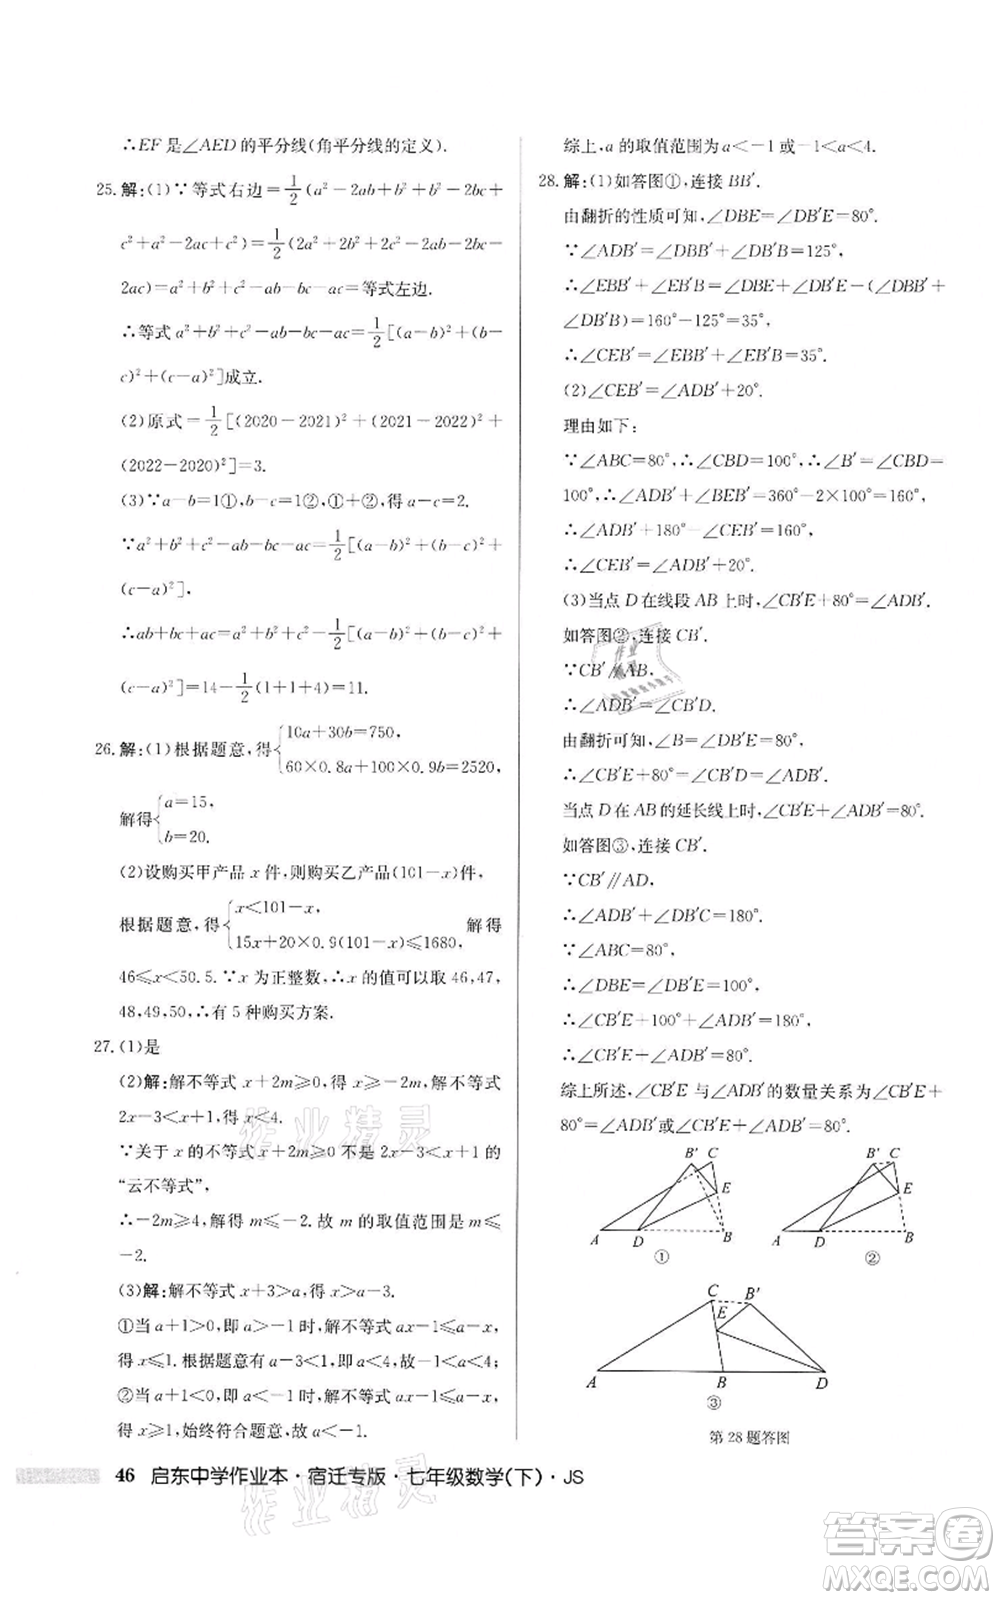 ∴EF是∠AED的平分线(角平分线的定义).
25.解:(1)∵等式右边=1/2(a²-2ab+b²+b²-2bc+
c²+a²-2ac+c²)=1/2(2a²+2b²+2c²-2ab-2bc-
2ac)=a²+b²+c²-ab-bc-ac=等式左边.
∴等式a²+b²+c²-ab-bc-ac=1/2[(a-b)²+(b-
c)²+(c-a)²]成立.
(2)原式=1/2[(2020-2021)²+(2021-2022)²+
(2022-2020)²]=3.
(3)∵a-b=1①,b-c=1②,①+②,得a-c=2.
∵a²+b²+c²-ab-bc-ac=1/2[(a-b)²+(b-c)²+
(c-a)²],
∴ab+bc+ac=a²+b²+c²-1/2[(a-b)²+(b-c)²+
(c-a)²]=14-1/2(1+1+4)=11.
26.解:(1)根据题意,得{10a+30b=750,
60×0.8a+100×0.9b=2520,
解得{a=15,
b=20.
(2)设购买甲产品x件,则购买乙产品(101-x)件,
根据题意,得{x<101-x, 解得
15x+20×0.9(101-x)≤1680,
46≤x<50.5.∵x为正整数,∴x的值可以取46,47,
48,49,50,∴有5种购买方案.
27.(1)是
(2)解:解不等式x+2m≥0,得x≥-2m,解不等式
2x-3<x+1,得x<4.
∵关于x的不等式x+2m≥0不是2x-3<x+1的
“云不等式”,
∴-2m≥4,解得m≤-2.故m的取值范围是m≤
-2.
(3)解:解不等式x+3>a,得x>a-3.
①当a+1>0,即a>-1时,解不等式ax-1<a-x,
得x≤1.根据题意有a-3<1,即a<4,故-1<a<4;
②当a+1<0,即a<-1时,解不等式ax-1<a-x,
得x>1,始终符合题意,故a<-1.
综上,a的取值范围为a<-1或-1<a<4.
28.解:(1)如答图①,连接BB′.
由翻折的性质可知,∠DBE=∠DB′E=80°.
∵∠ADB′=∠DBB′+∠DB′B=125°,
∴∠EBB′+∠EB′B=∠DBE+∠DB′E-(∠DBB′+
∠DB′B)=160°-125°=35°,
∴∠CEB′=∠EBB′+∠EB′B=35°.
(2)∠CEB′=∠ADB′+20°.
理由如下:
∵∠ABC=80°,∴∠CBD=100°,∴∠B′=∠CBD=
100°,∴∠ADB′+∠BEB′=360°-2×100°=160°,
∴∠ADB′+180°-∠CEB′=160°,
∴∠CEB′=∠ADB′+20°.
(3)当点D在线段AB上时,∠CB′E+80°=∠ADB′.
如答图②,连接CB′.
∵CB′∥AB,
∴∠ADB′=∠CB′D.
由翻折可知,∠B=∠DB′E=80°,
∴∠CB′E+80°=∠CB′D=∠ADB′.
当点D在AB的延长线上时,∠CB′E+∠ADB′=80°.
如答图③,连接CB′.
∵CB′∥AD,
∴∠ADB′+∠DB′C=180°.
∵∠ABC=80°,
∴∠DBE=∠DB′E=100°,
∴∠CB′E+100°+∠ADB′=180°,
∴∠CB′E+∠ADB′=80°.
综上所述,∠CB′E与∠ADB′的数量关系为∠CB′E+
80°=∠ADB′或∠CB′E+∠ADB′=80°.
B′ C E A D B ①
B′ C E A D B ②
C B′ E A B D ③
第28题答图
46 启东中学作业本·宿迁专版·七年级数学(下)·JS
作业精灵
作业精灵
答案卷
MXQE.COM